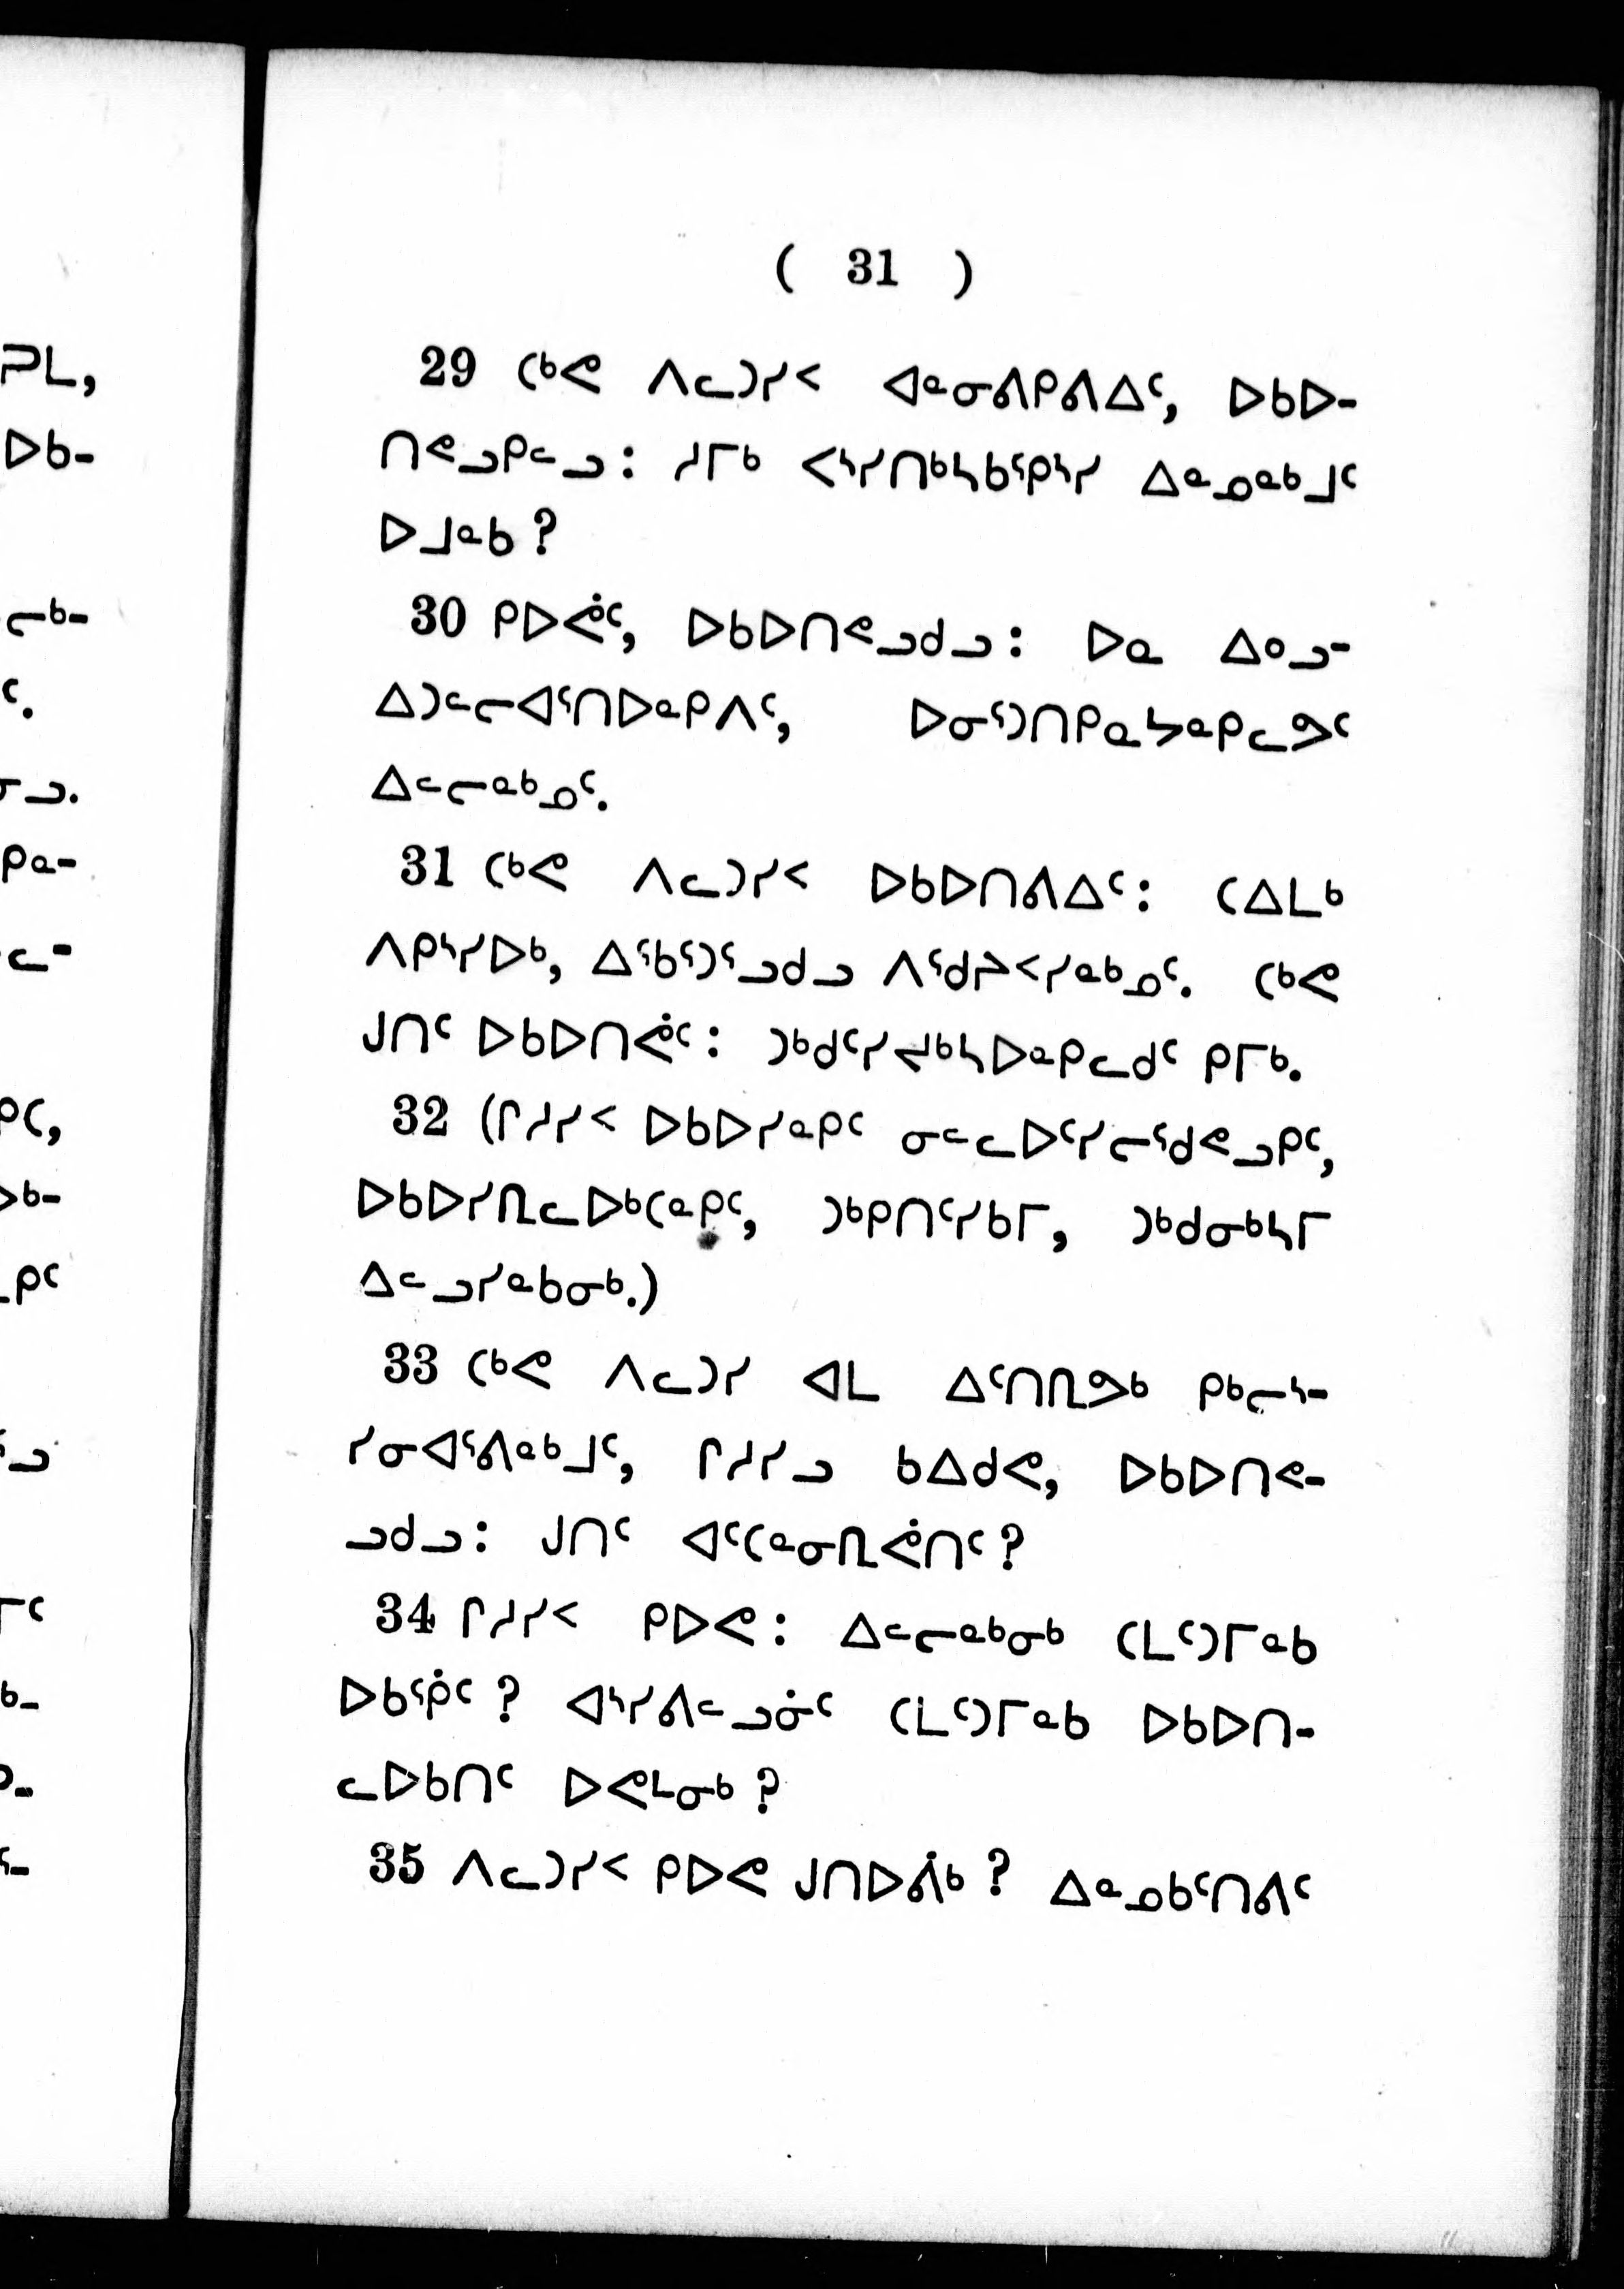 ( 31 )
29 ᑕᒃᕙ ᐱᓚᑐᓯᑉ ᐊᓐᓂᕕᑭᕕᐃᑦ, ᐅᑲᐅ-
ᑎᕝᓗᑭᓪᓗ: ᓱᒥᒃ ᐸᔅᓯᑎᒃᓴᑲᕐᑭᔅᓯ ᐃᓐᓄᓐᒃᒧᑦ
ᐅᒧᓐᑲ?
30 ᑭᐅᕚᑦ, ᐅᑲᐅᑎᕝᓗᑯᓗ: ᐅᓇ ᐃᐤᓗ-
ᐃᑐᓪᓕᐊᕐᑎᐅᓐᑭᐱᑦ, ᐅᓂᕐᑐᑎᑭᓇᔭᓐᑭᓚᕗᑦ
ᐃᓪᓕᓐᒃᓄᑦ.
31 ᑕᒃᕙ ᐱᓚᑐᓯᑉ ᐅᑲᐅᑎᕕᐃᑦ: ᑕᐃᒪᒃ
ᐱᑭᔅᓯᐅᒃ, ᐃᕐᑲᕐᑐᕐᓗᑯᓗ ᐱᕐᑯᔨᑉᓯᓐᒃᓄᑦ. ᑕᒃᕙ
ᒍᑎᑦ ᐅᑲᐅᑎᕚᑦ: ᑐᒃᑯᑦᓯᔪᒃᓴᐅᓐᑭᓚᑯᑦ ᑭᒥᒃ.
32 (ᒋᓱᓯᑉ ᐅᑲᐅᓯᓐᑭᑦ ᓂᓪᓚᐅᑦᓯᓕᕐᑯᕝᓗᑭᑦ,
ᐅᑲᐅᓯᕆᓚᐅᒃᑕᓐᑭᑦ, ᑐᒃᑭᑎᑦᓯᑲᒥ, ᑐᒃᑯᓂᒃᓴᒥ
ᐃᓪᓗᓯᓐᑲᓂᒃ.)
33 ᑕᒃᕙ ᐱᓚᑐᓯ ᐊᒪ ᐃᑦᑎᕆᕗᒃ ᑭᒃᓕᔅ-
ᓯᓂᐊᕐᕕᓐᒃᒧᑦ, ᒋᓱᓯᓗ ᑲᐃᑯᕙ, ᐅᑲᐅᑎᕝ-
ᓗᑯᓗ: ᒍᑎᑦ ᐊᑦᑕᓐᓂᕆᕚᑎᑦ?
34 ᒋᓱᓯᑉ ᑭᐅᕙ: ᐃᓪᓕᓐᒃᓂᒃ ᑕᒪᑦᑐᒥᓐᑲ
ᐅᑲᕐᑮᑦ? ᐊᔅᓯᕕᓪᓘᓃᑦ ᑕᒪᑦᑐᒥᓐᑲ ᐅᑲᐅᑎ-
ᓚᐅᑲᑎᑦ ᐅᕙᒻᓂᒃ?
35 ᐱᓚᑐᓯᑉ ᑭᐅᕙ ᒍᑎᐅᕖᒃ? ᐃᓐᓄᑲᑦᑎᕕᑦ